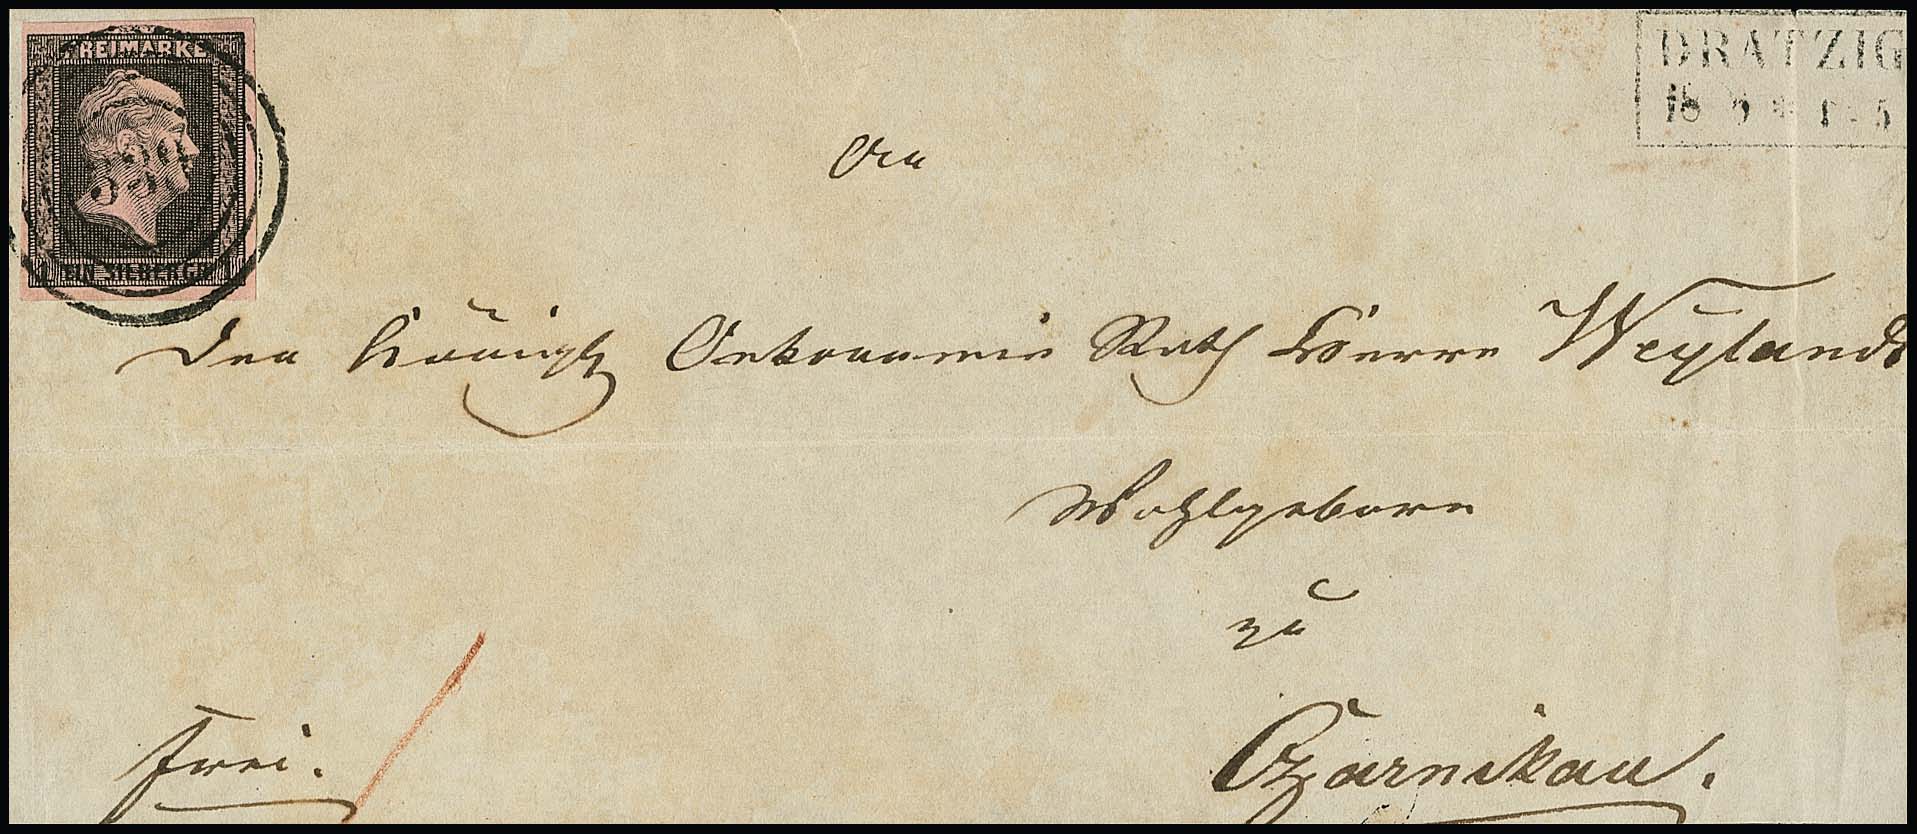 FREIMARKE
1 EIN SILBERGR. 1
DRATZIG
18 1 - 5
An
den Königl Oekonomie Rath Herrn Weyland
Wohlgeboren
zu
frei.
Czarnikau.